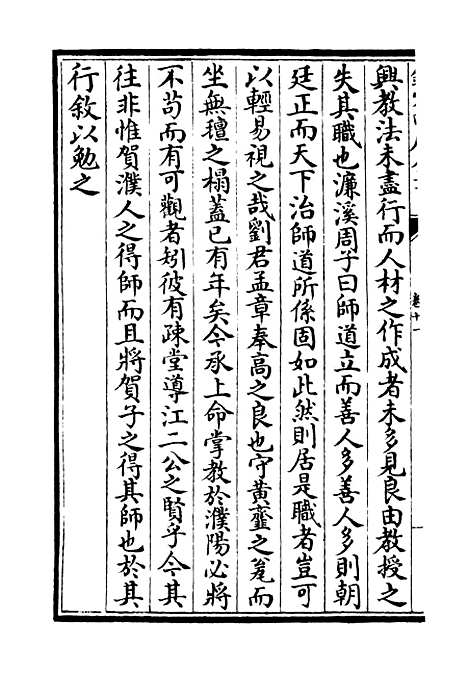 興教法未盡行而人材之作成者未多見良由教授之
失其職也濂溪周子曰師道立而善人多善人多則朝
廷正而天下治師道所係固如此然則居是職者豈可
以輕易視之哉劉君孟章奉高之良也守黃虀之瓮而
坐無氊之榻蓋已有年矣今承上命掌教於濮陽必將
不苟而有可觀者矧彼有疎堂導江二公之賢乎今其
往非惟賀濮人之得師而且將賀子之得其師也於其
行敘以勉之
卷十一